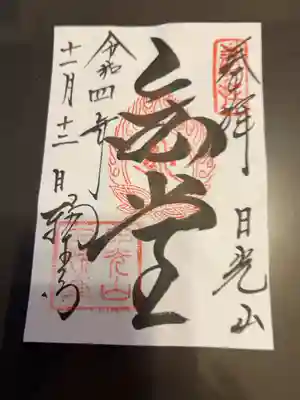 奉拝
日光山
金堂
令和四年
十一月十二日
輪王寺